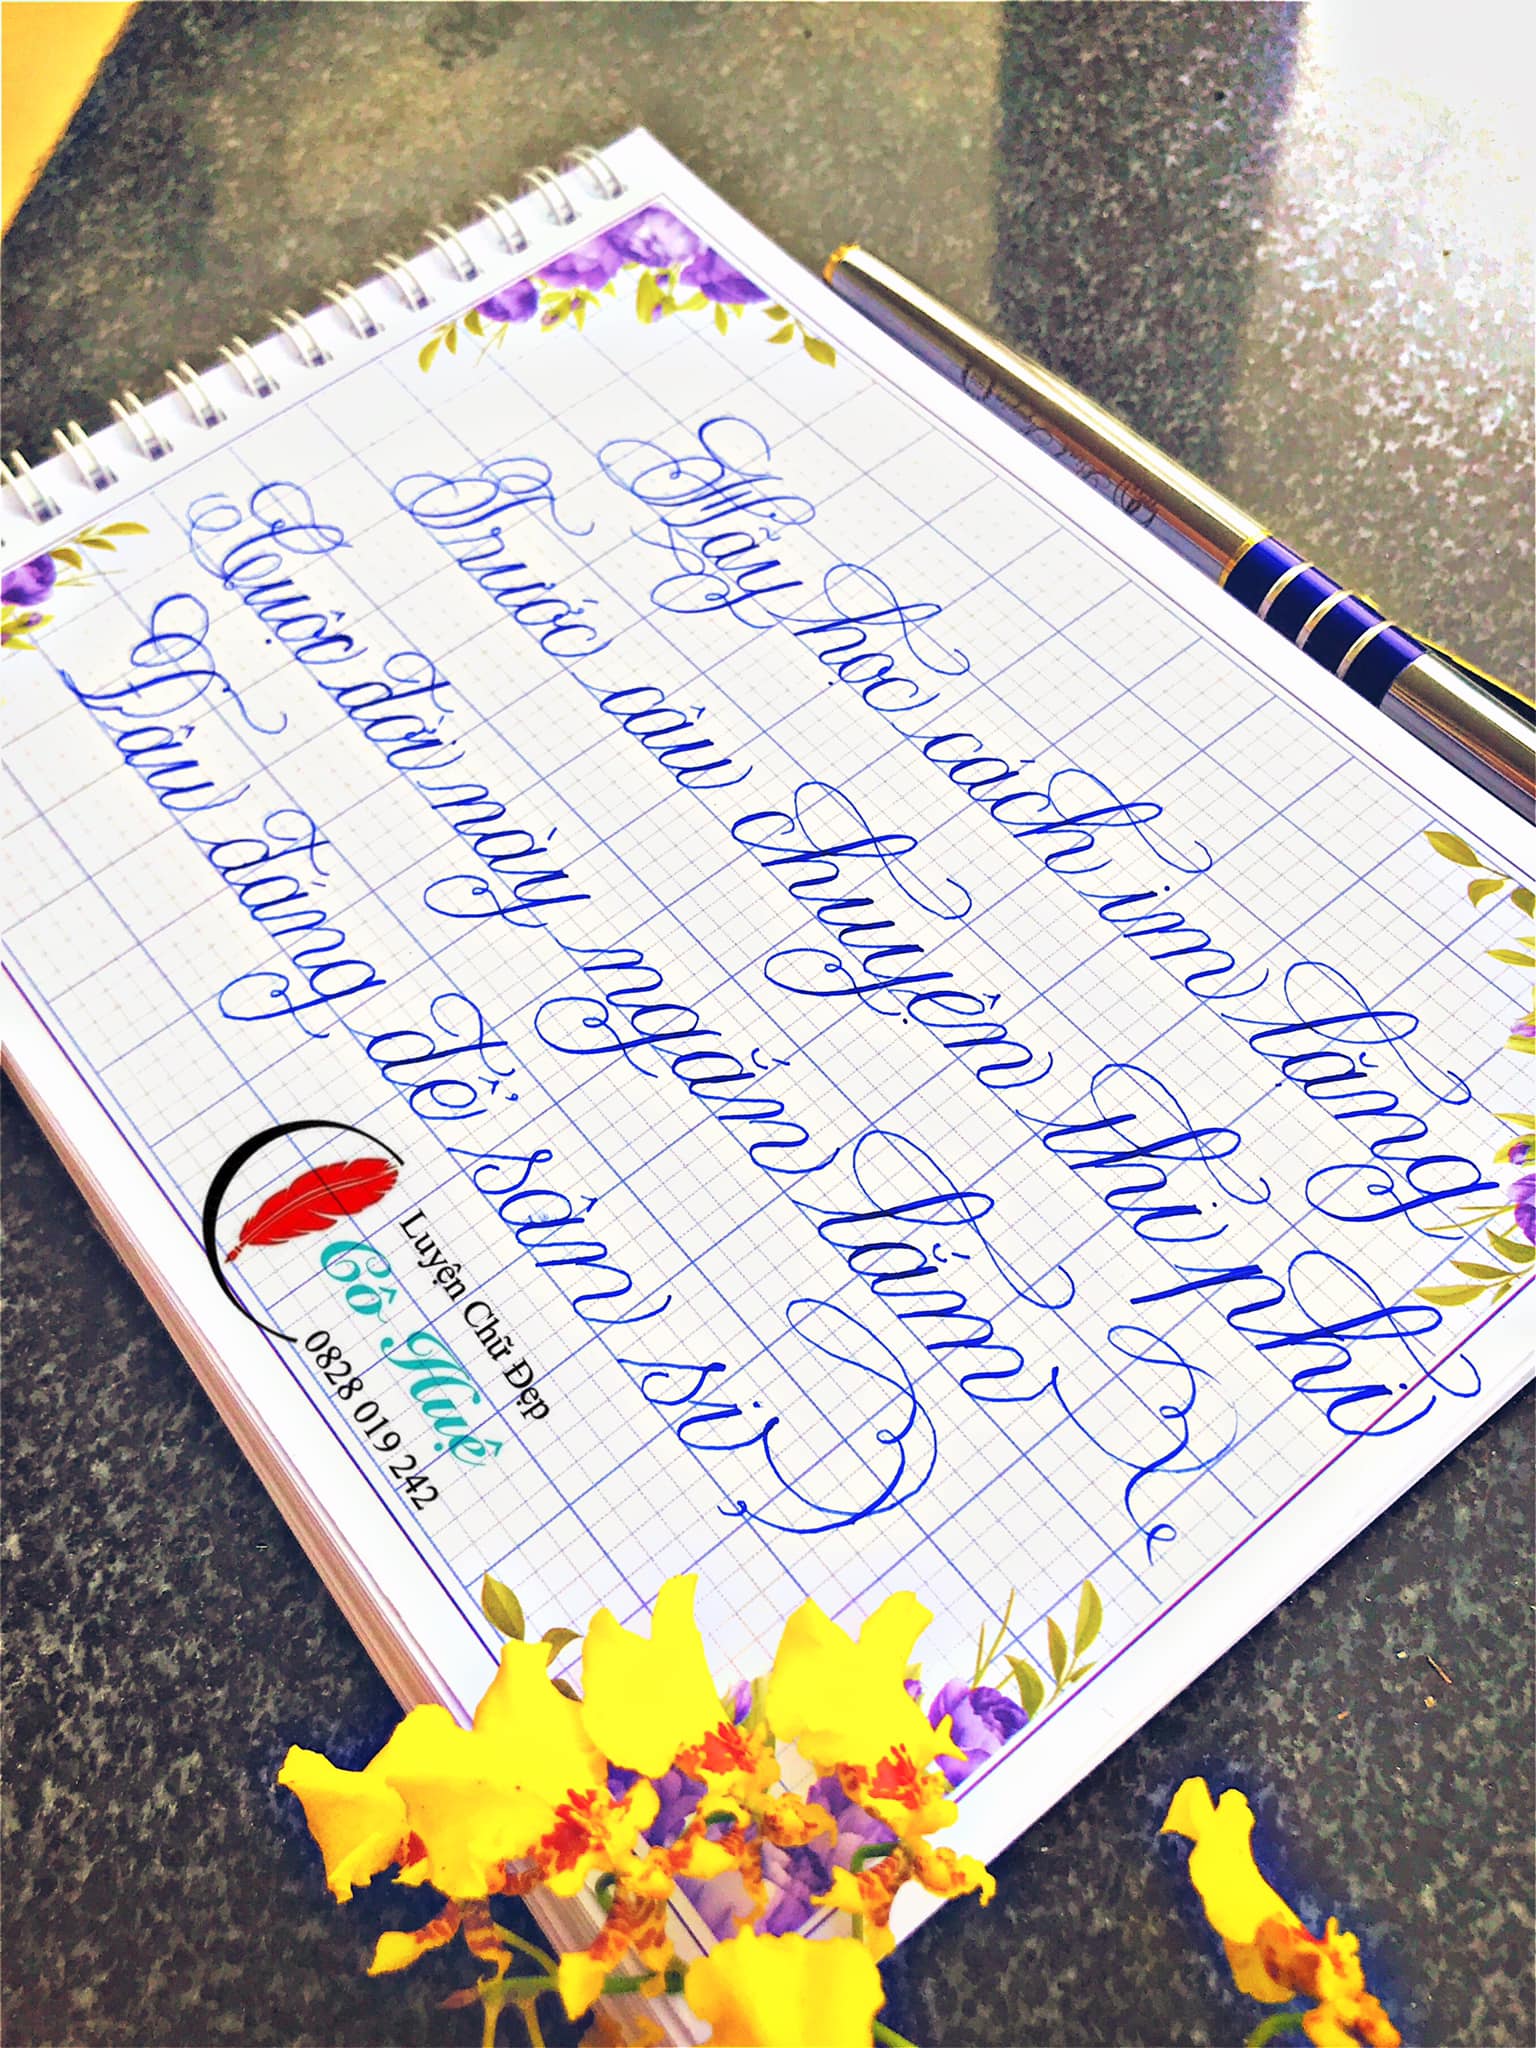 Hãy học cách im lặng
Trước câu chuyện thị phi
Cuộc đời này ngắn lắm
Đâu đáng để sân si
Luyện Chữ Đẹp
Cô Huệ
0828 019 242